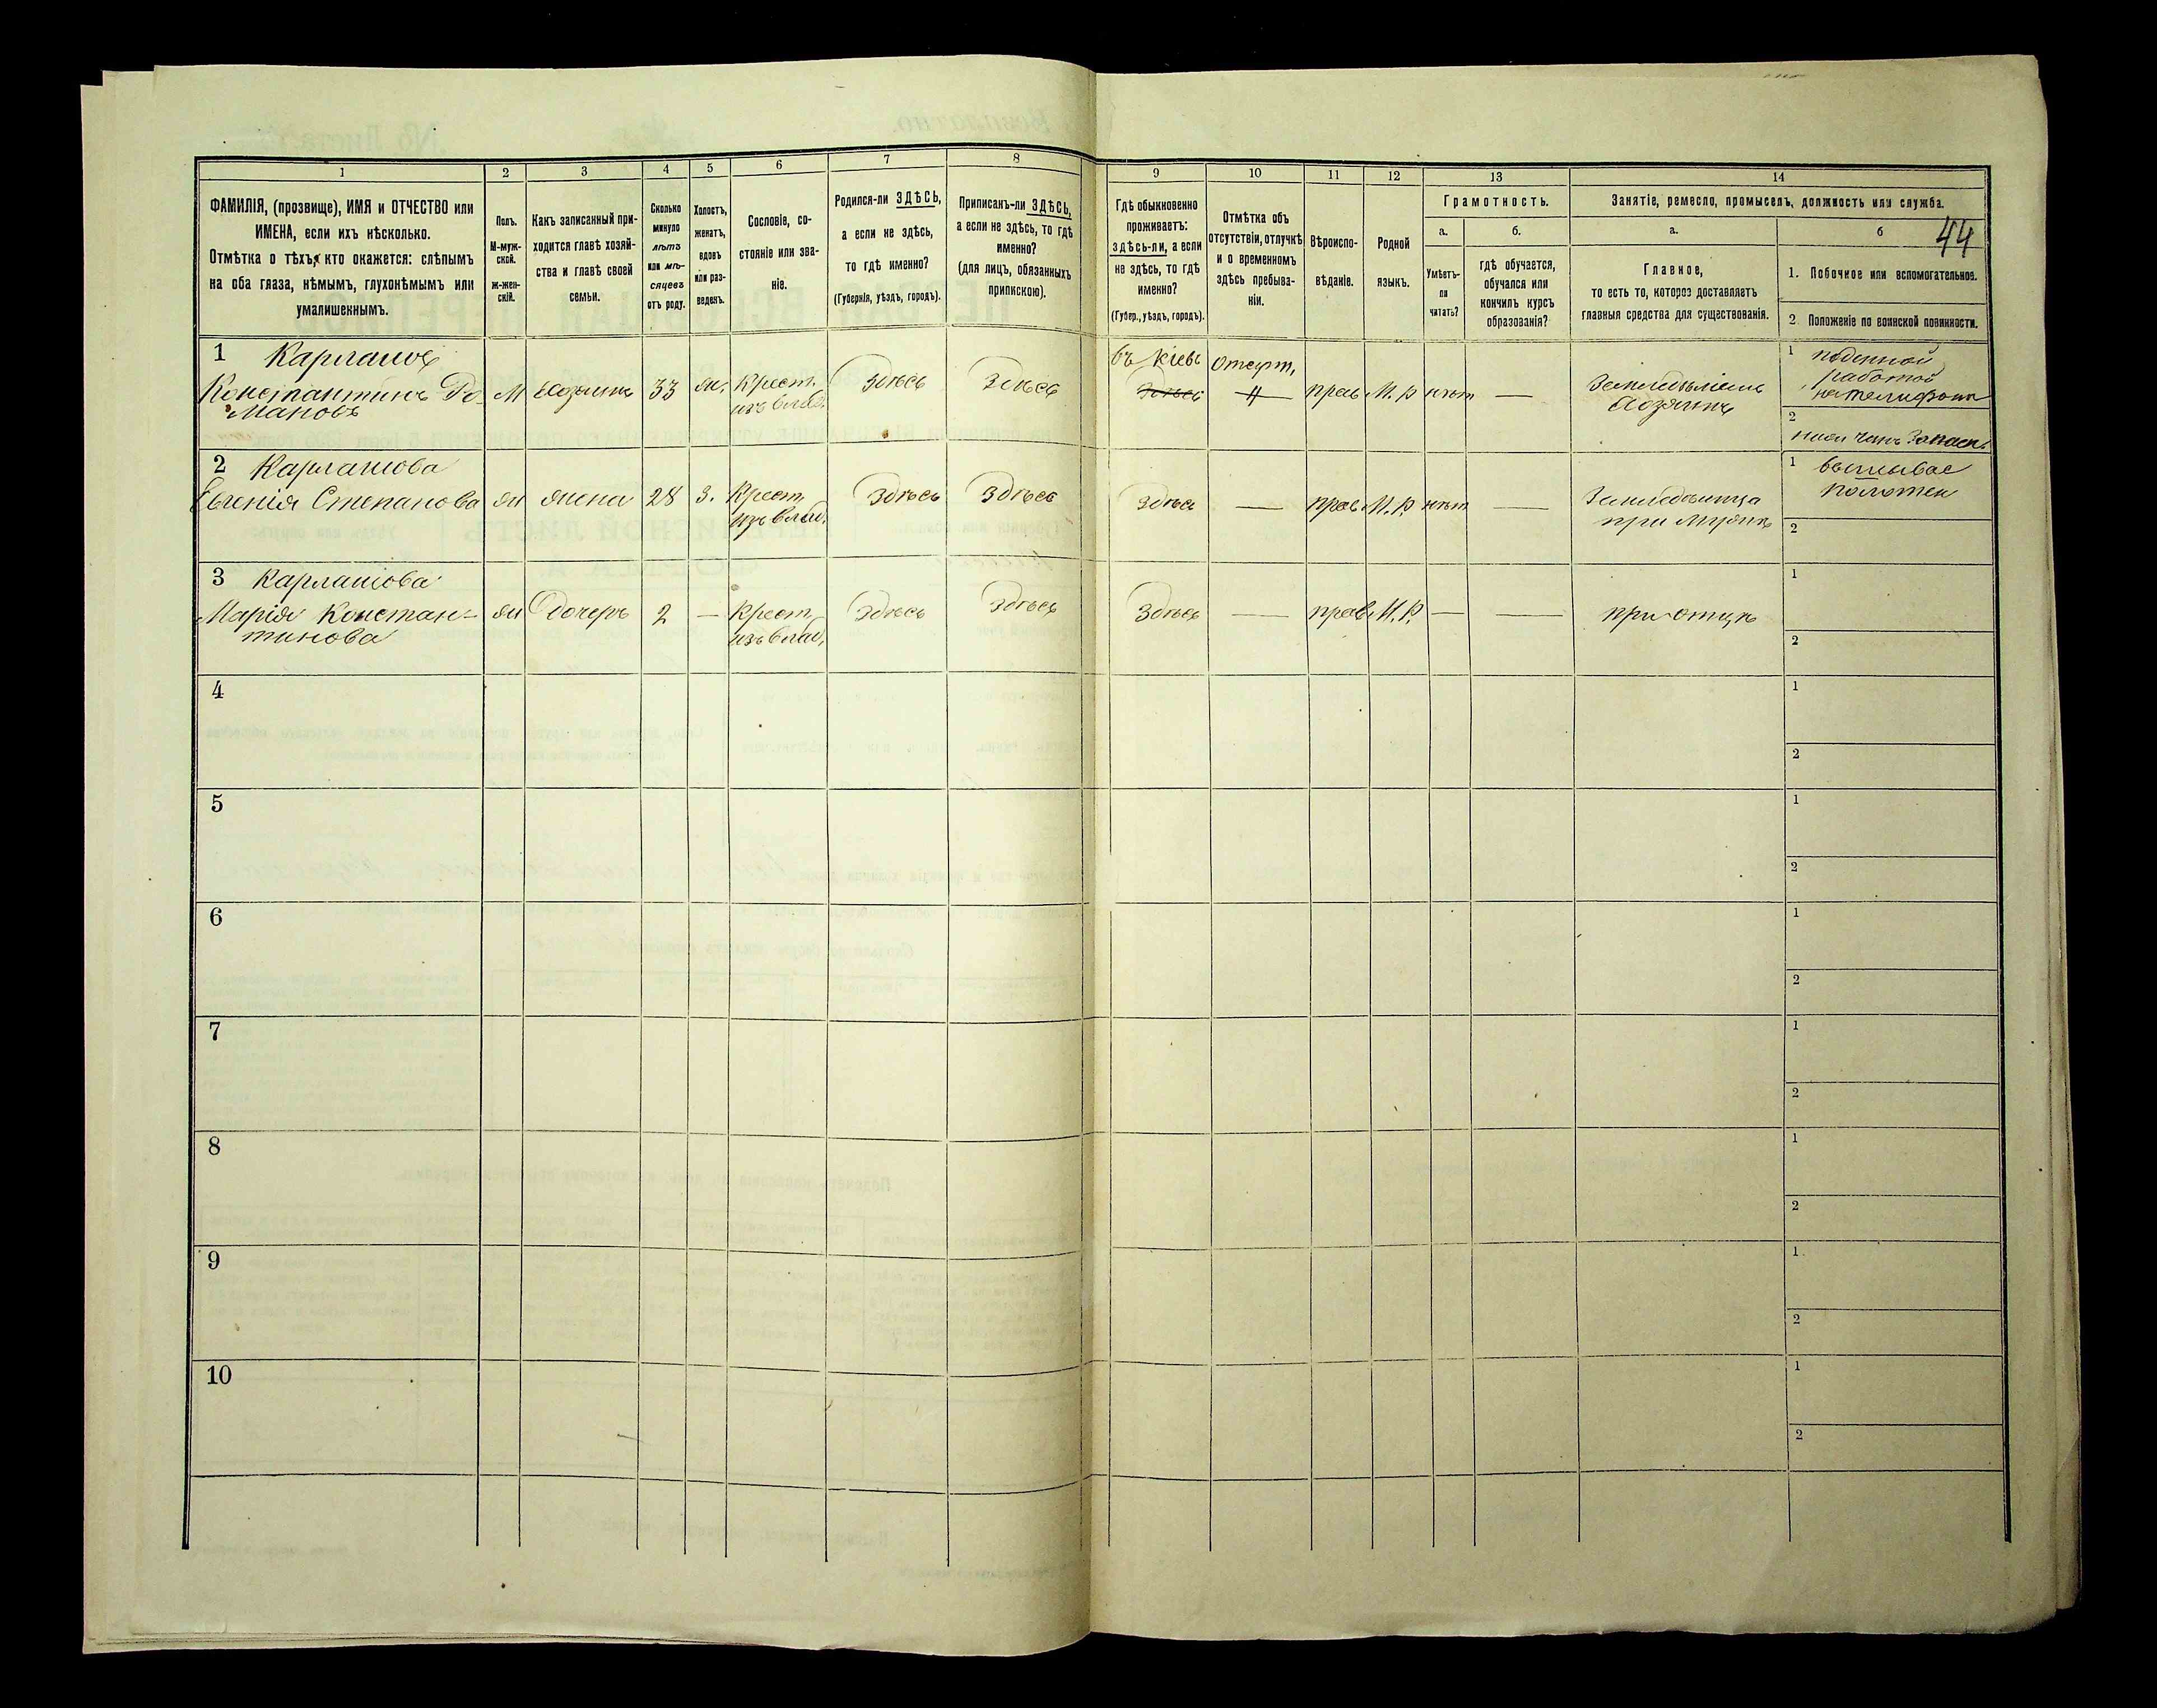 1 2 3 4 5 6 7 8 9 10 11 12 13 14
ФАМИЛІЯ, (прозвище), ИМЯ и ОТЧЕСТВО или
ИМЕНА, если ихъ нѣсколько.
Отмѣтка о тѣхъ, кто окажется: слѣпымъ
на оба глаза, нѣмымъ, глухонѣмымъ или
умалишеннымъ.
Полъ.
М-муж-
ской.
ж-жен-
скій.
Какъ записанный при-
ходится главѣ хозяй-
ства и главѣ своей
семьи.
Сколько
минуло
лѣтъ
или мѣ-
сяцевъ
отъ роду.
Холостъ,
женатъ,
вдовъ
или раз-
веденъ.
Сословіе, со-
стояніе или зва-
ніе.
Родился-ли ЗДѢСЬ,
а если не здѣсь,
то гдѣ именно?
(Губернія, уѣздъ, городъ).
Приписанъ-ли ЗДѢСЬ,
а если не здѣсь, то гдѣ
именно?
(для лицъ, обязанныхъ
припискою).
Гдѣ обыкновенно
проживаетъ:
здѣсь-ли, а если
не здѣсь, то гдѣ
именно?
(Губер., уѣздъ, городъ).
Отмѣтка объ
отсутствіи, отлучкѣ
и о временномъ
здѣсь пребыва-
ніи.
Вѣроиспо-
вѣданіе.
Родной
языкъ.
Грамотность.
а.
Умѣетъ-
ли
читать?
б.
гдѣ обучается,
обучался или
кончилъ курсъ
образованія?
Занятіе, ремесло, промыселъ, должность или служба.
44
а.
Главное,
то есть то, которое доставляетъ
главныя средства для существованія.
б
1. Побочное или вспомогательное.
2. Положеніе по воинской повинности.
1 Карлашов
Константинъ Ро-
мановъ
М хозяинъ 33 ж. Крест. изъ влад. Здѣсь Здѣсь
въ Кіевѣ Здѣсь Отсут. прав М. Р нѣтъ —
Земледѣліемъ
Хозяинъ
1 поденной
работой
2 Запасн.
2 Карлашова
Евгенія Степанова
ж жена 28 З. Крест. изъ влад. Здѣсь Здѣсь
Здѣсь — прав. М. Р. нѣт —
при мужѣ
1 вышывае
полотен
2
3 Карлашова
Марія Констан-
тинова
ж Дочерь 2 — Крест. изъ влад. Здѣсь Здѣсь
Здѣсь — прав М. Р. — — при отцѣ
1
2
4
1
2
5
1
2
6
1
2
7
1
2
8
1
2
9
1
2
10
1
2